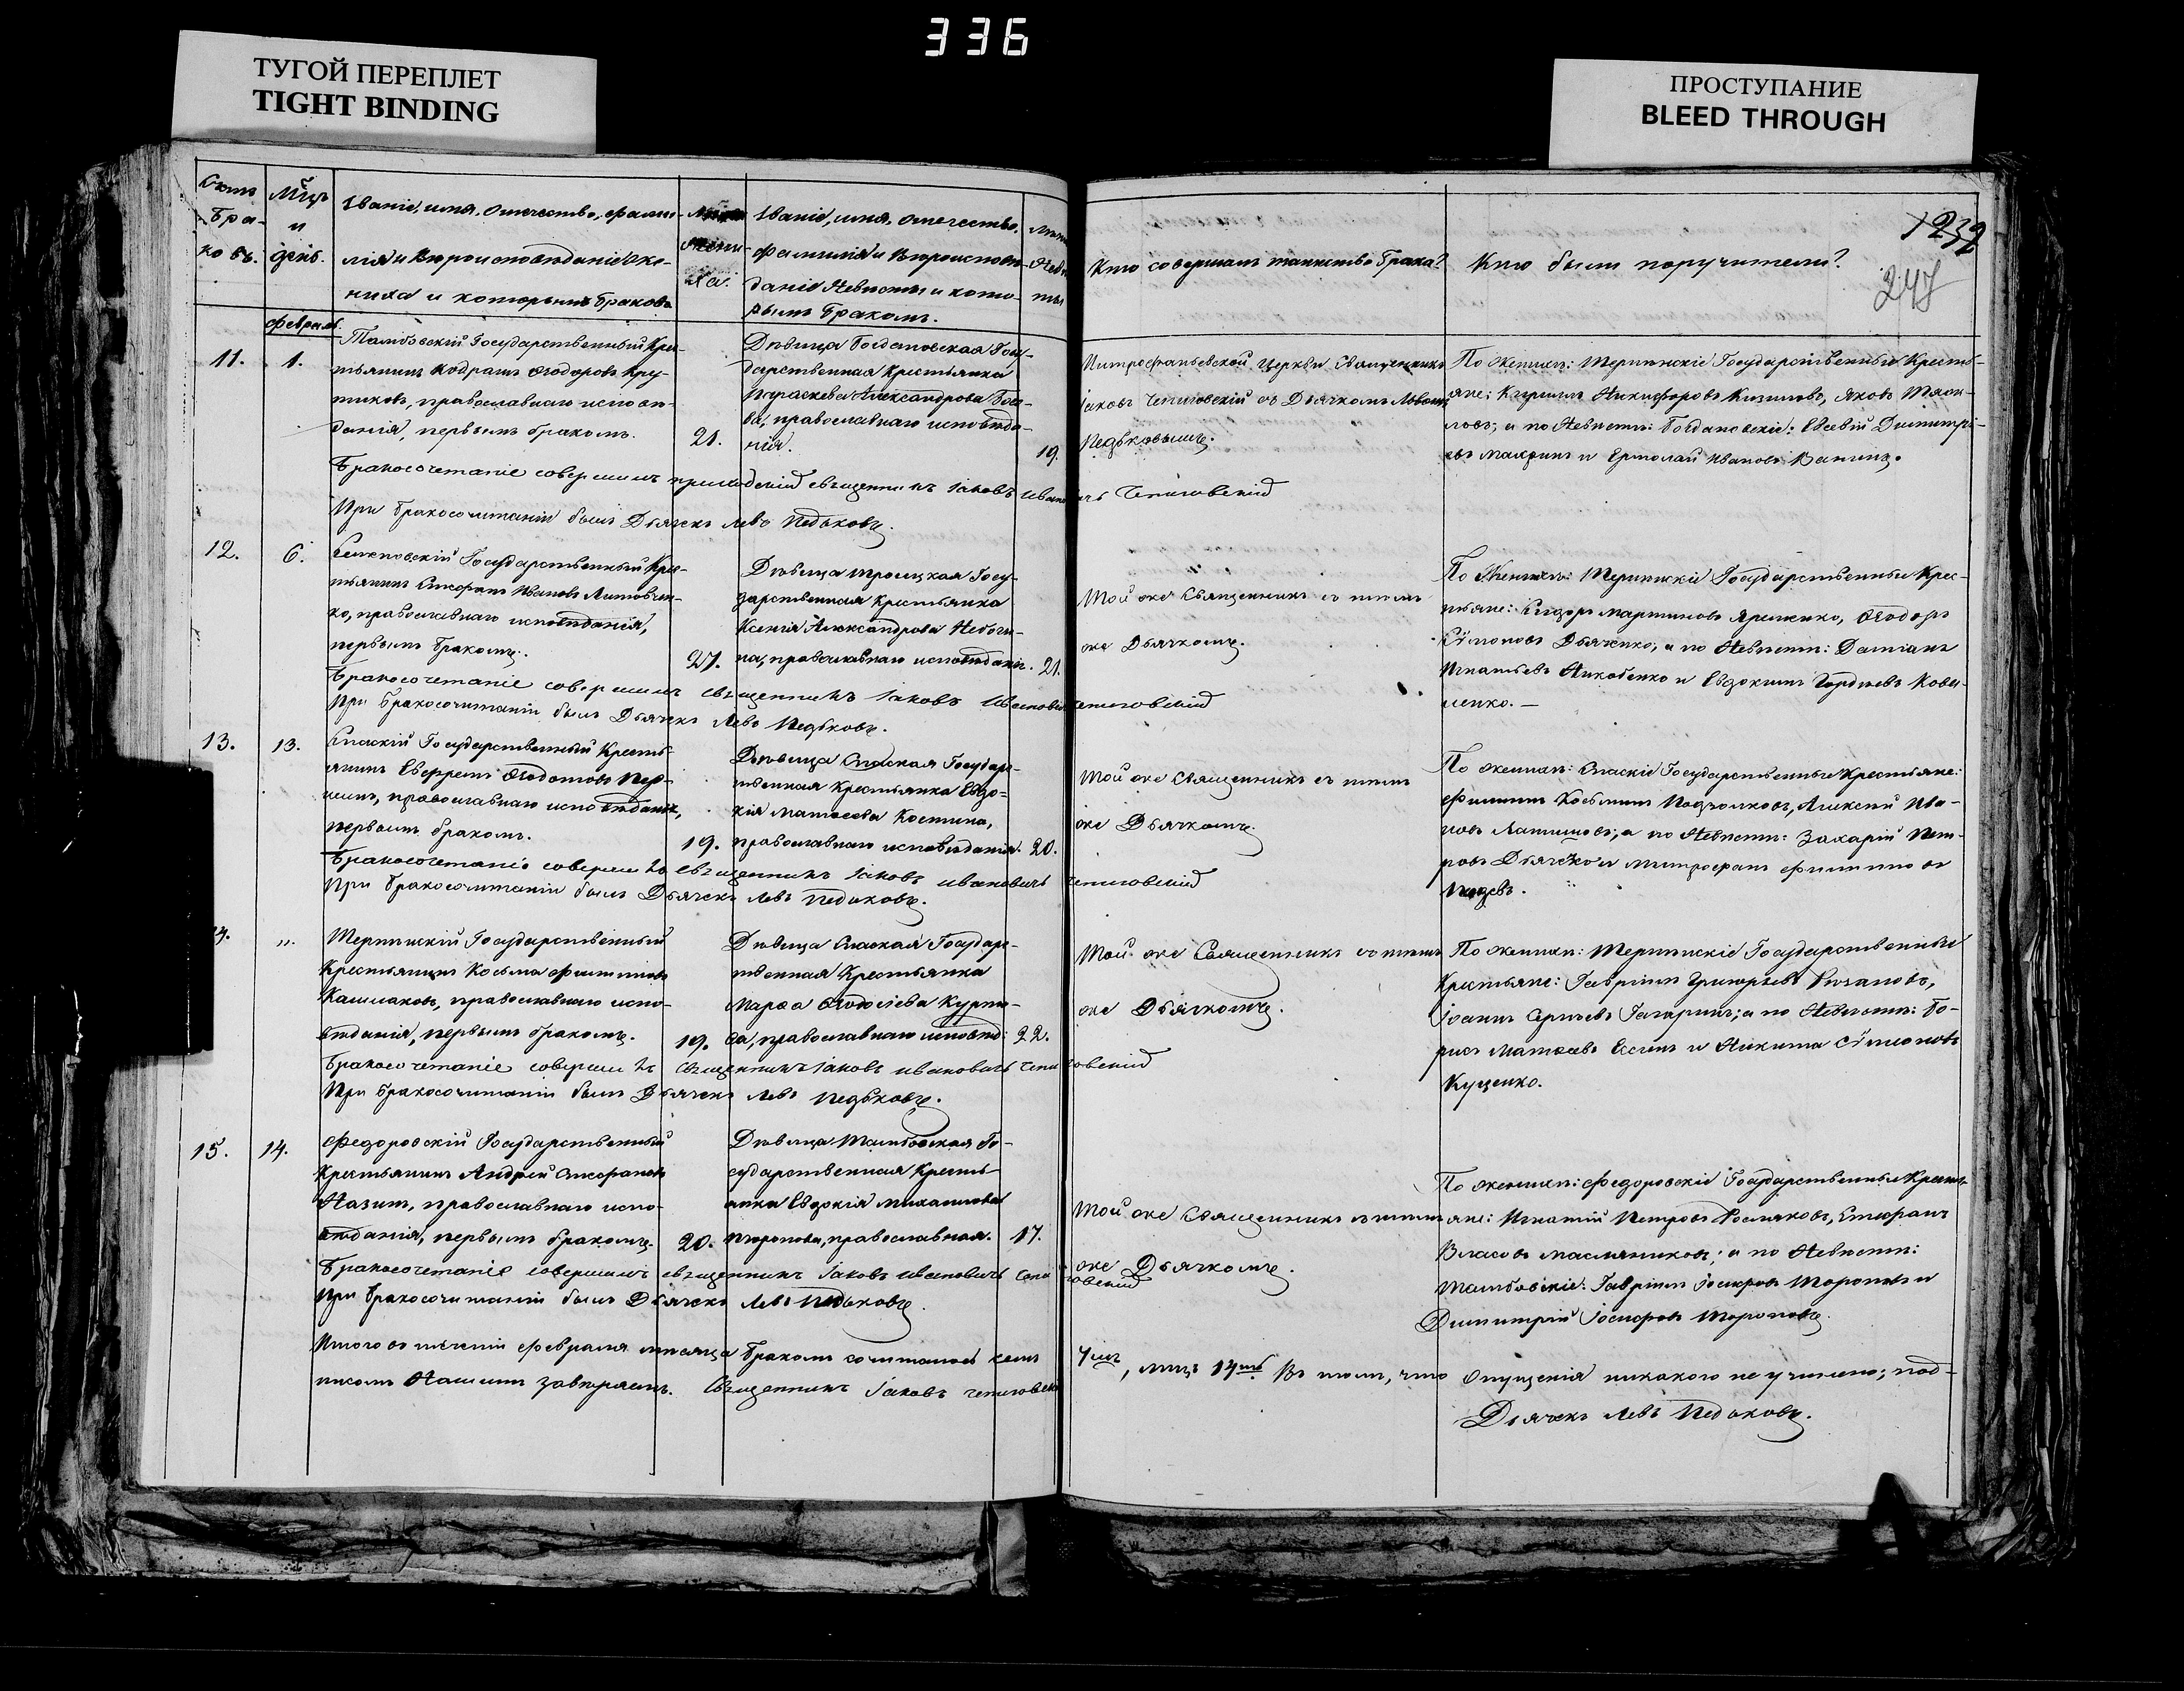 336
ТУГОЙ ПЕРЕПЛЕТ
TIGHT BINDING
ПРОСТУПАНИЕ
BLEED THROUGH
1232
247
Счетъ
Бра-
ковъ.
Мцъ
и
день.
Званіе, имя, отечество, фами-
лія и Вѣроисповѣданіе Же-
ниха и которымъ бракомъ
Лѣта
Жени-
ха.
Званіе, имя, отечество,
фамилія и Вѣроисповѣ-
даніе Невѣсты и кото-
рымъ бракомъ.
Лѣта
Невѣс
ты
Кто совершалъ таинство Брака?
Кто были поручители?
Февраль.
11.
1.
Тамбовскій Государственный Крес-
тьянинъ Кодратъ Ѳеодоровъ Кру-
тиковъ, православнаго исповѣ-
данія, первымъ бракомъ.
21.
Дѣвица Богдановская Госу-
дарственная Крестьянка
Параскева Александрова Бое-
ва, православнаго исповѣда-
нія.
19.
Митрофаньевской Церкви Священникъ
Іаковъ Чепиговскій съ Дьячкомъ Львомъ
Педьковымъ.
По Женихѣ: Терпѣнскіе Государственные Кресть-
яне: Кириллъ Никифоровъ Кизиловъ, Яковъ
и по Невѣстѣ: Богдановскіе: Евсевій Димитрі-
евъ Малхинъ и Ермолай Ивановъ Ванинъ.
Бракосочетаніе совершилъ приходскій священникъ Іаковъ Ивановичъ Чепиговскій
При бракосочитаніи былъ Дьячекъ Левъ Педьковъ.
12.
6.
Семеновскій Государственный Крес-
тьянинъ Стефанъ Ивановъ Литовчен-
ко, православнаго исповѣданія,
первымъ бракомъ.
27.
Дѣвица Троицкая Госу-
дарственная Крестьянка
Ксенія Александрова Небоги-
на, православнаго исповѣданія.
21.
Той же Священникъ съ тѣмъ
же Дьячкомъ.
По Женихѣ: Терпѣнскіе Государственные Крес-
тьяне: Сидоръ Мартиновъ Яременко, Ѳеодоръ
Сѵмоновъ Дьяченко, а по Невѣстѣ: Даміанъ
Игнатьевъ Никобенко и Евдокимъ Гордѣевъ Кова-
ленко.—
Бракосочетаніе совершилъ священникъ Іаковъ Ивановичъ Чепиговскій
При бракосочитаніи былъ Дьячекъ Левъ Педьковъ.
13.
13.
Спаскій Государственный Кресть-
янинъ Евфремъ Ѳедотовъ Пер-
шинъ, православнаго исповѣданія,
первымъ бракомъ.
19.
Дѣвица Спаская Государс-
твенная Крестьянка Евдо-
кія Матвеева Костина,
православнаго исповѣданія.
20.
Той же Священникъ съ тѣмъ
же Дьячкомъ.
По женихѣ: Спаскіе Государственные Крестьяне:
Филиппъ Косьминъ Подъолковъ, Алексѣй Ива-
новъ Латышовъ; а по Невѣстѣ: Захарій Пет-
ровъ Дьячковъ и Митрофанъ Филиппов
Бракосочетаніе совершилъ священникъ Іаковъ Ивановичъ Чепиговскій
При бракосочитаніи былъ Дьячекъ Левъ Педьковъ.
14.
"
Терпѣнскій Государственный
Крестьянинъ Косьма Филипповъ
Кашлаковъ, православнаго испо-
вѣданія, первымъ бракомъ.
19.
Дѣвица Спаская Государс-
твенная Крестьянка
Марѳа Ѳеодосіева Курти-
са, православнаго исповѣд:
22.
Той же Священникъ съ тѣмъ
же Дьячкомъ.
По женихѣ: Терпѣнскіе Государственные
Крестьяне: Гавріилъ Григорьевъ Рязановъ,
Іоаннъ Сергѣевъ Гагаринъ; а по Невѣстѣ: Бо-
рисъ Матвеевъ Есинъ и Никита Сѵмеоновъ
Куценко.
Бракосочетаніе совершилъ Священникъ Іаковъ Ивановичъ Чепиговскій
При бракосочитаніи былъ Дьячекъ Левъ Педьковъ.
15.
14.
Федоровскій Государственный
Крестьянинъ Андрей Стефановъ
Назинъ, православнаго испо-
вѣданія, первымъ бракомъ.
20.
Дѣвица Тамбовская Го-
сударственная Кресть-
янка Евдокія Михаилова
Торопова, православная.
17.
Той же Священникъ съ тѣмъ
же Дьячкомъ.
По женихѣ: Федоровскіе Государственные Кресть-
яне: Игнатій Петровъ Росляковъ, Стефанъ
Власовъ Масляниковъ; а по Невѣстѣ:
Тамбовскіе: Гавріилъ Іосифовъ Тороповъ и
Димитрій Іосифовъ Тороповъ.
Бракосочетаніе совершилъ священникъ Іаковъ Ивановичъ Чепиговскій
При бракосочитаніи былъ Дьячекъ Левъ Педьковъ.
Итого въ теченіи февраля мѣсяца бракомъ сочиталось семь 7мь, лицъ 14ть. Въ томъ, что опущенія никакого не учинено; под-
писомъ Нашимъ завѣряемъ. Священникъ Іаковъ Чепиговскій
Дьячекъ Левъ Педьковъ.